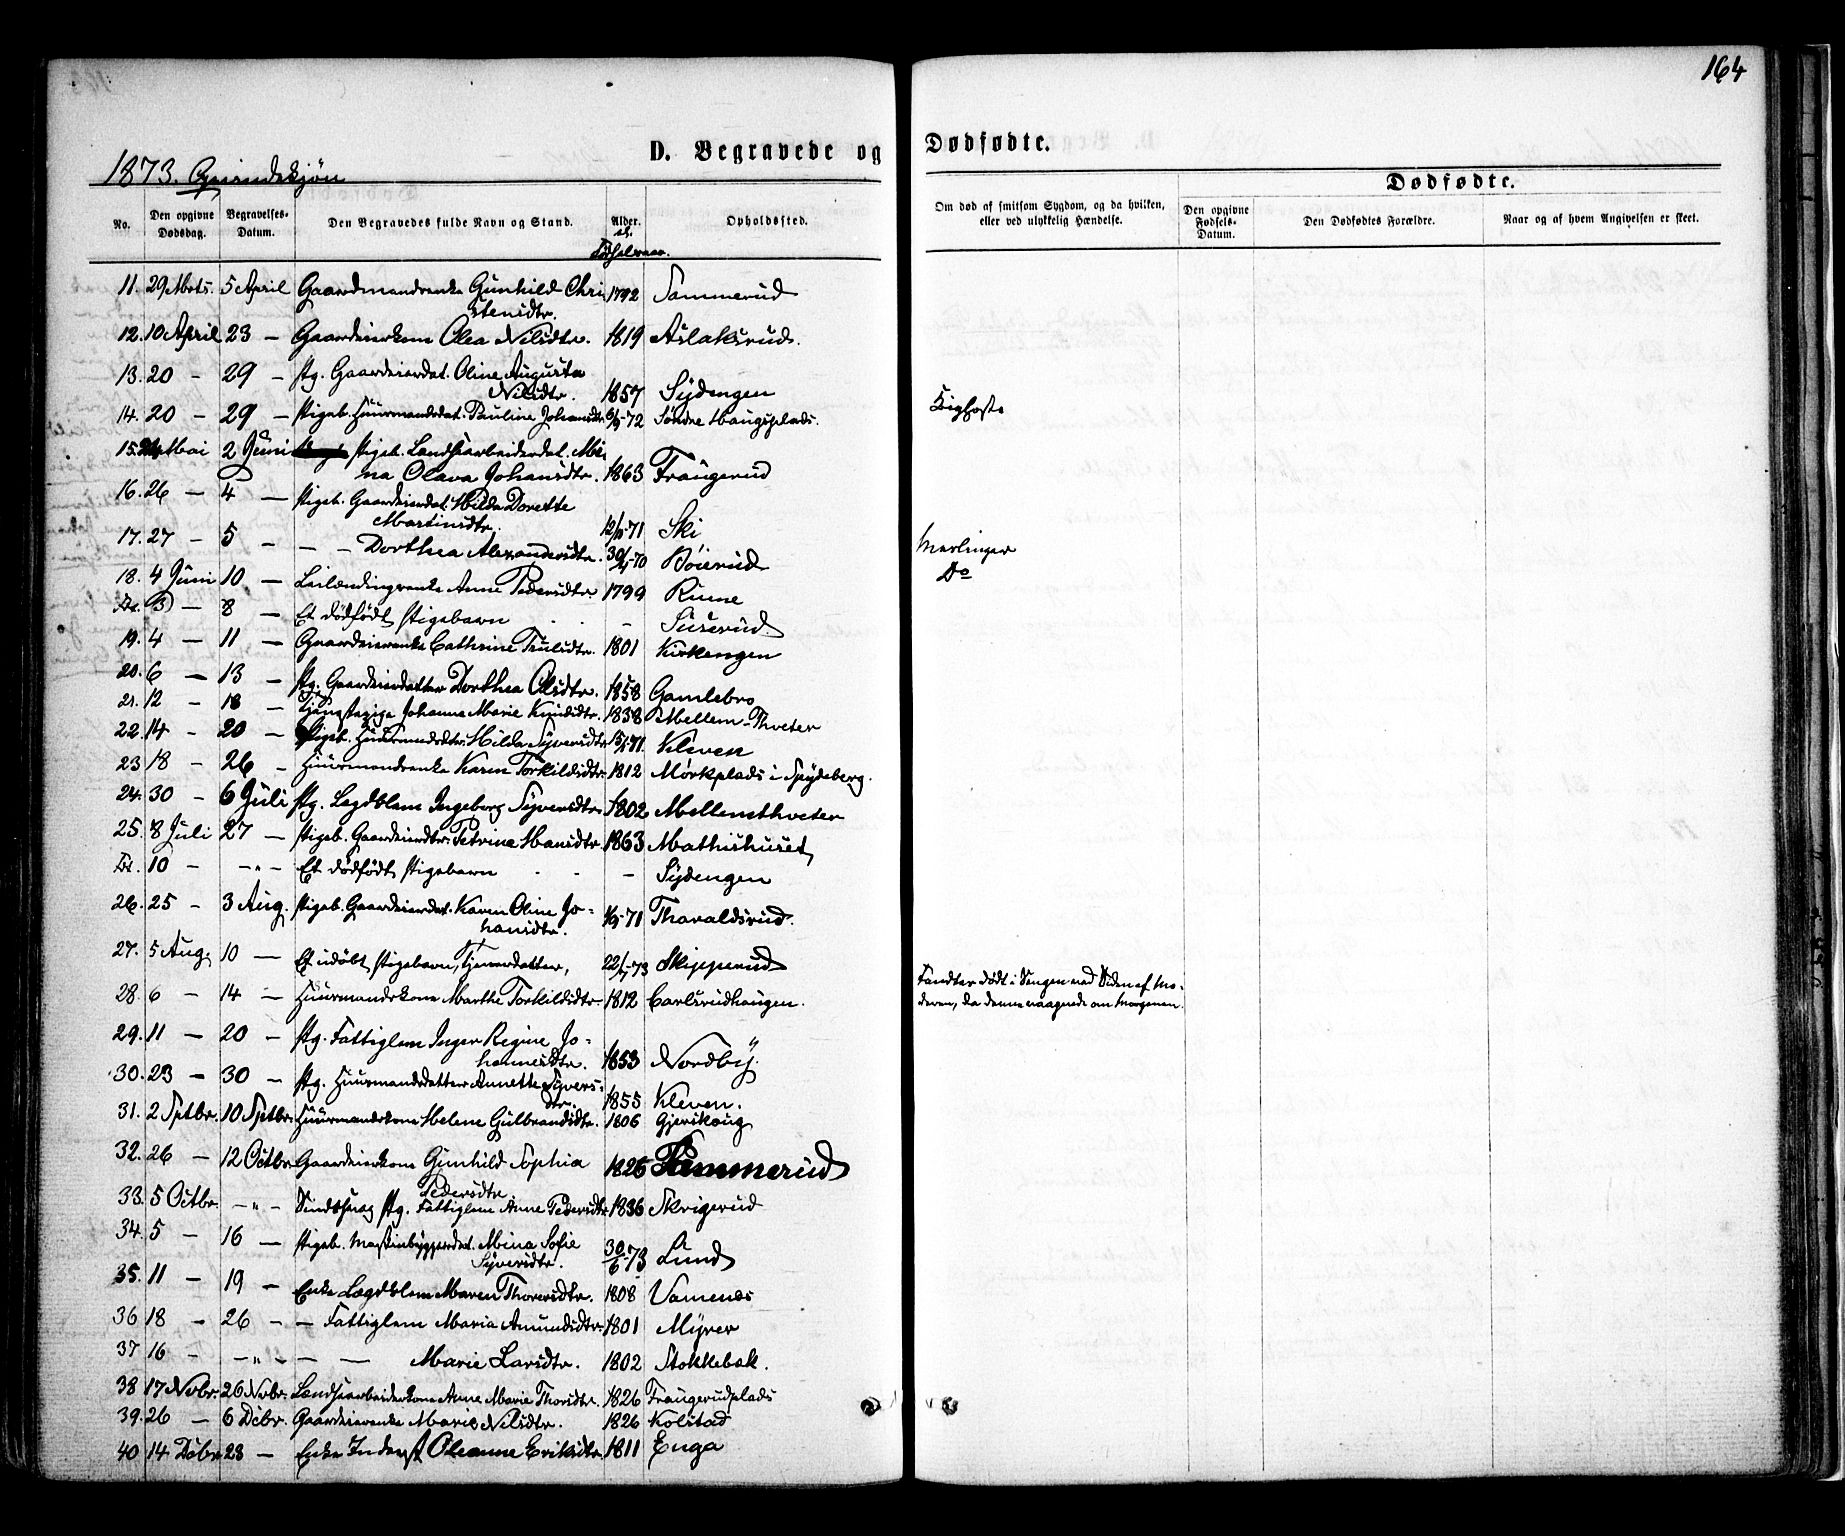 164
D. Begravede og Dødfødte.
1873. Qvindekjøn
Dødfødte.
No. Den opgivne Dødsdag. Begravelses-Datum. Den Begravedes fulde Navn og Stand. Alder. Opholdssted. Om død af smitsom Sygdom, og da hvilken, eller ved ulykkelig Hændelse. Den opgivne Fødsels-Datum. Den Dødfødtes Forældre. Naar og af hvem Angivelsen er skeet.
Fødselsaar.
11. 29 Mrts. 5 April Gaardmandsenke Gunhild Chri 1792 Sammerud
stensdtr.
12. 10 April 23 — Gaardeierkone Olea Nilsdtr. 1819 Aslaksrud.
13. 20 — 29 — Pg. Gaardeierdat. Oline Augusta
Nilsdtr. 1857 Sydengen
14. 20 — 29 — Pigeb. Huusmandsdat. Pauline Johansdtr. -72 Søndre Haugsplads. Kighoste
15. Mai 2 Juni Pigeb. Landharbeiderdat. Mi
na Olava Johansdtr. 1863 Fraugerud
16. 26 — 4 — Pigeb. Gaardeierdat. Hilda Dorette
Martinsdtr. -71 Ski Meslinger
17. 27 — 5 — — — Dorthea Alexandersdtr. -70 Bøierud Do
18. 4 Juni 10 — Leilændingenke Anne Pedersdtr. 1799 Rume
Do. 3 — 8 — Et dødfødt Pigebarn - Suserud.
19. 4 — 11 — Gaardeierenke Cathrine Trulsdtr. 1801 Kirkengen
20. 6 — 13 — Pg. Gaardeierdatter Dorthea Olsdtr. 1858 Gamlebro
21. 12 - 18 - Tjenestepige Johanne Marie Knudsdtr. 1838 Mellem-Thveter
22. 14 - 20 - Pigeb. Huusmandsdtr. Hilda Syversdtr. -71. Kleven
23 18 - 26 - Huusmandsenke Karen Torkildsdtr. 1812 Mørkplads i Spydeberg.
24. 30 - 6 Juli Pg. Legdslem Ingeborg Syversdtr. 1802 Mellemthveter
25. 8 Juli 27 — Pigeb. Gaardeierdtr. Petrine Hansdtr. 1863 Mathishuset
10 - -"- Et dødfødt Pigebarn - - - Sydengen
26. 25 - 3 Aug. Pigeb. Gaardeierdat. Karen Oline Jo- -71 Thoraldsrud.
hansdtr.
27. 5 Aug. 10 — Et udøbt Pigebarn, Tjenerdatter, 22/7-73 Skipperud Fandtes dødt i Sengen ved Siden af Mo-
28. 6 - 14 - Huusmandskone Marthe Torkildsdtr. 1812 Carlsrudhaugen. deren, da denne vaagnede om Morgenen.
29. 11 — 20 — Pg. Fattiglem Inger Regine Jo-
hannesdtr. 1853 Nordby.
30. 23 — 30 — Pg. Huusmandsdatter Annette Syvers-
dtr. 1855 Kleven.
31. 2 Sptbr. 10 Sptbr. Huusmandskone Helene Gulbrandsdtr. 1806 Gjevikaug
32. 26 — 12 Octbr Gaardeierkone Gunhild Sophia 1825 Sammerud
Pedersdtr
33. 5 Octbr. -"- Sindssvag Pg. Fattiglem Anne Pedersdtr. 1836 Skrigerud
34. 5 - 16 — Pigeb. Maskinbyggerdat. Mina Sofie
Syversdtr. 30/6-73 Lund
35. 11 — 19 — Enke Lægdslem Maren Thorersdtr. 1808 Vamenes
36 18 - 26 - — Fattiglem Maria Amundsdtr. 1801 Myrer
37 16 - -"- — — Marie Larsdtr. 1802 Stokkebæk.
38 17 Novbr. 26 Novbr. Landhaarbeiderkone Anne Marie Thorsdtr. 1826 Fraugerudplads
39. 26 — 6 Decbr. Gaardeierenke Marie Nilsdtr. 1826 Kolstad
40 14 Decbr 23 — Enke Inderst Oleanne Eriksdtr. 1811 Enga